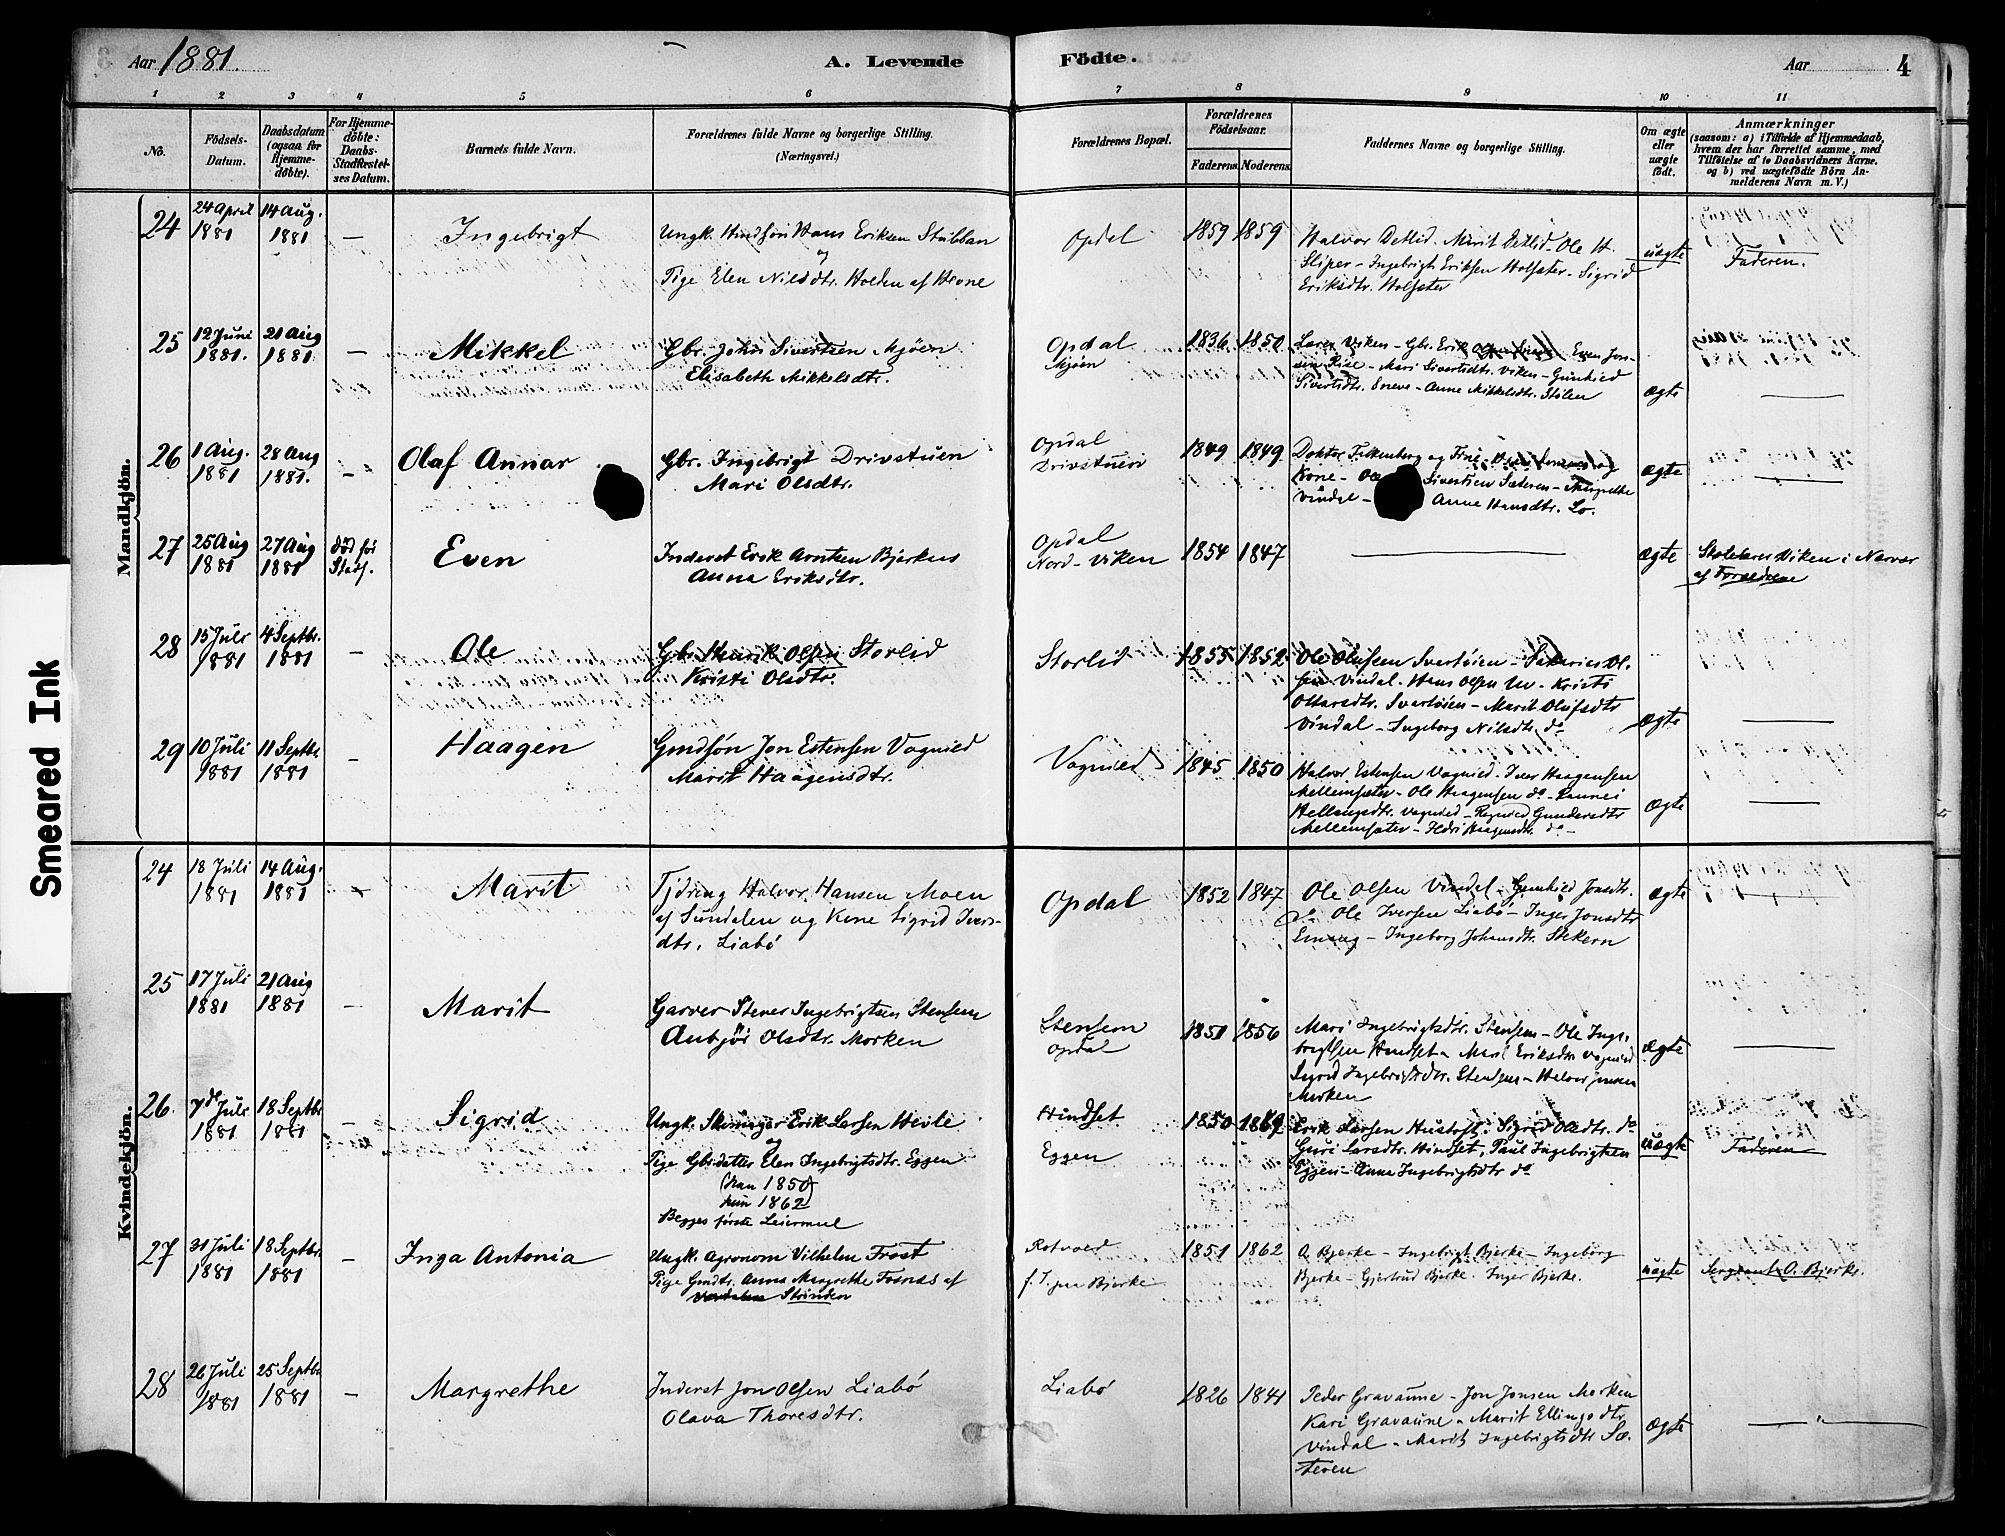 Smeared Ink
Aar 1881.
A. Levende
Födte.
Aar
4
1 2 3 4 5 6 7 8 9 10 11
No.
Födsels-
Datum.
Daabsdatum
(ogsaa for
Hjemme-
döbte).
For Hjemme-
döbte:
Daabs-
Stadfæstel-
ses Datum.
Barnets fulde Navn.
Forældrenes fulde Navne og borgerlige Stilling.
(Næringsvei.)
Forældrenes Bopæl.
Forældrenes
Födselsaar.
Faderens. Moderens.
Faddernes Navne og borgerlige Stilling.
Om ægte
eller
uægte
födt.
Anmærkninger
(saasom: a) i Tilfælde af Hjemmedaab,
hvem der har forrettet samme, med
Tilföielse af to Daabsvidners Navne.
og b) ved uægtefödte Börn An-
melderens Navn m. V.)
Mandkjön.
24
24 April
1881
14 Aug.
1881
—
Ingebrigt
Ungk. Hans Eriksen Stubban
og
Pige Elen Nilsdtr. Holden af
Opdal
1859 1859
Halvor Detlid. Marit Detlid - Ole H.
Sliper - Ingebrigt Eriksen Holseter - Sigrid
Eriksdtr. Holseter
uægte
Faderen.
25
12 Juni
1881.
21 Aug
1881
—
Mikkel
Gbr. John Sivertsen Mjöen
Elisabeth Mikkelsdtr.
Opdal
Mjöen
1836 1850
Lærer Viken - Gbr. Erik Even Jon-
sen Rise - Mari Sivertsdtr. Viken - Gunhild
Sivertsdtr. - Anne Mikkelsdtr. Stölen
ægte
—
26
1 Aug.
1881
28 Aug
1881.
—
Olaf Annar
Gbr. Ingebrigt Drivstuen
Mari Olsdtr.
Opdal
Drivstuen
1849 1849
Doktor Falkenberg og
Kone - Sivertsen Sæteren - Margrethe
Vindal - Anne Hansdtr. Lo.
ægte
—
27
25 Aug
1881
27 Aug
1881
död för
Stadf.
Even
Inderst Erik Arntsen Bjerknes
Anna Eriksdtr.
Opdal
Nord-Viken
1854 1847
—
ægte
Skolelærer Viken i Nærvær
af Forældrene
28
15 Juli
1881
4 Septbr.
1881
—
Ole
Gbr. Henrik Olsen Storlid
Kristi Olsdtr.
Storlid
1855 1852
Ole Olufsen Svertöien - Ol-
sen Vindal - Hans Olsen - Kristi
Ottarsdtr. Svertöien - Marit Olufsdtr
Vindal - Ingeborg Nilsdtr. do
ægte
—
29
10 Juli
1881
11 Septbr.
1881
—
Haagen
Gmdsön Jon Estensen Vognild
Marit Haagensdtr.
Vognild
1845 1850
Halvor Estensen Vognild - Iver Haagensen
Mellemsæter - Ole Haagensen do -
Vognild - Ragnild Gundersdtr
Mellemsæter - Haagensdtr. do -
ægte
—
Kvindekjön.
24
18 Juli
1881
14 Aug.
1881
Marit
Halvor Hansen Moen
af Sundalen og Kone Sigrid Ivers-
dtr. Liabö
Opdal
1852 1847
Ole Olsen Vindal - Gunhild Jonsdtr.
do Ole Iversen Liabö - Inger Jonsdtr
- Ingeborg Johansdtr. Stekern
ægte
—
25
17 Juli
1881
21 Aug
1881
—
Marit
Garver Stener Ingebrigtsen Stensem
Anbjör Olsdtr. Morken
Stensem
Opdal
1851 1856
Mari Ingebrigtsdtr. Stensem - Ole Inge-
brigtsen Hindset - Eriksdtr Vognild
Sigrid Ingebrigtsdtr. Stensem - Halvor Jonsen
Morken
ægte
—
26
7de Juli
1881
18 Septbr
1881
—
Sigrid
Ungk. Erik Larsen Hevle
og
Pige Gbrdatter Elen Ingebrigtsdtr. Eggen
(han 1850
hun 1862)
Begges förste Leiermaal
Hindset
Eggen
1850 1862
Erik Larsen - Sigrid Olsdtr. do
Guri Larsdtr. Hindset, Paul Ingebrigtsen
Eggen - Anne Ingebrigtsdtr do
uægte
Faderen
27
31 Juli
1881
18 Septbr.
1881
—
Inga Antonia
Ungk. Agronom Vilhelm Frost
Pige Gmdtr. Anna Margrethe Fosnæs af
Strinden
Rotvold
f. T. paa Bjerke
1851 1862
O. Bjerke - Ingebrigt Bjerke - Ingeborg
Bjerke - Gjertrud Bjerke. Inger Bjerke.
uægte
Sergeant O. Bjerke.
28
26 Juli
1881
25 Septbr
1881
—
Margrethe
Inderst Jon Olsen Liabö
Olava Thoresdtr.
Liabö
1826 1841
Peder Gravaune - Jon Jonsen Morken
Kari Gravaune - Marit Ellingsdtr
Vindal - Marit Ingebrigtsdtr Sæ-
teren
ægte
—